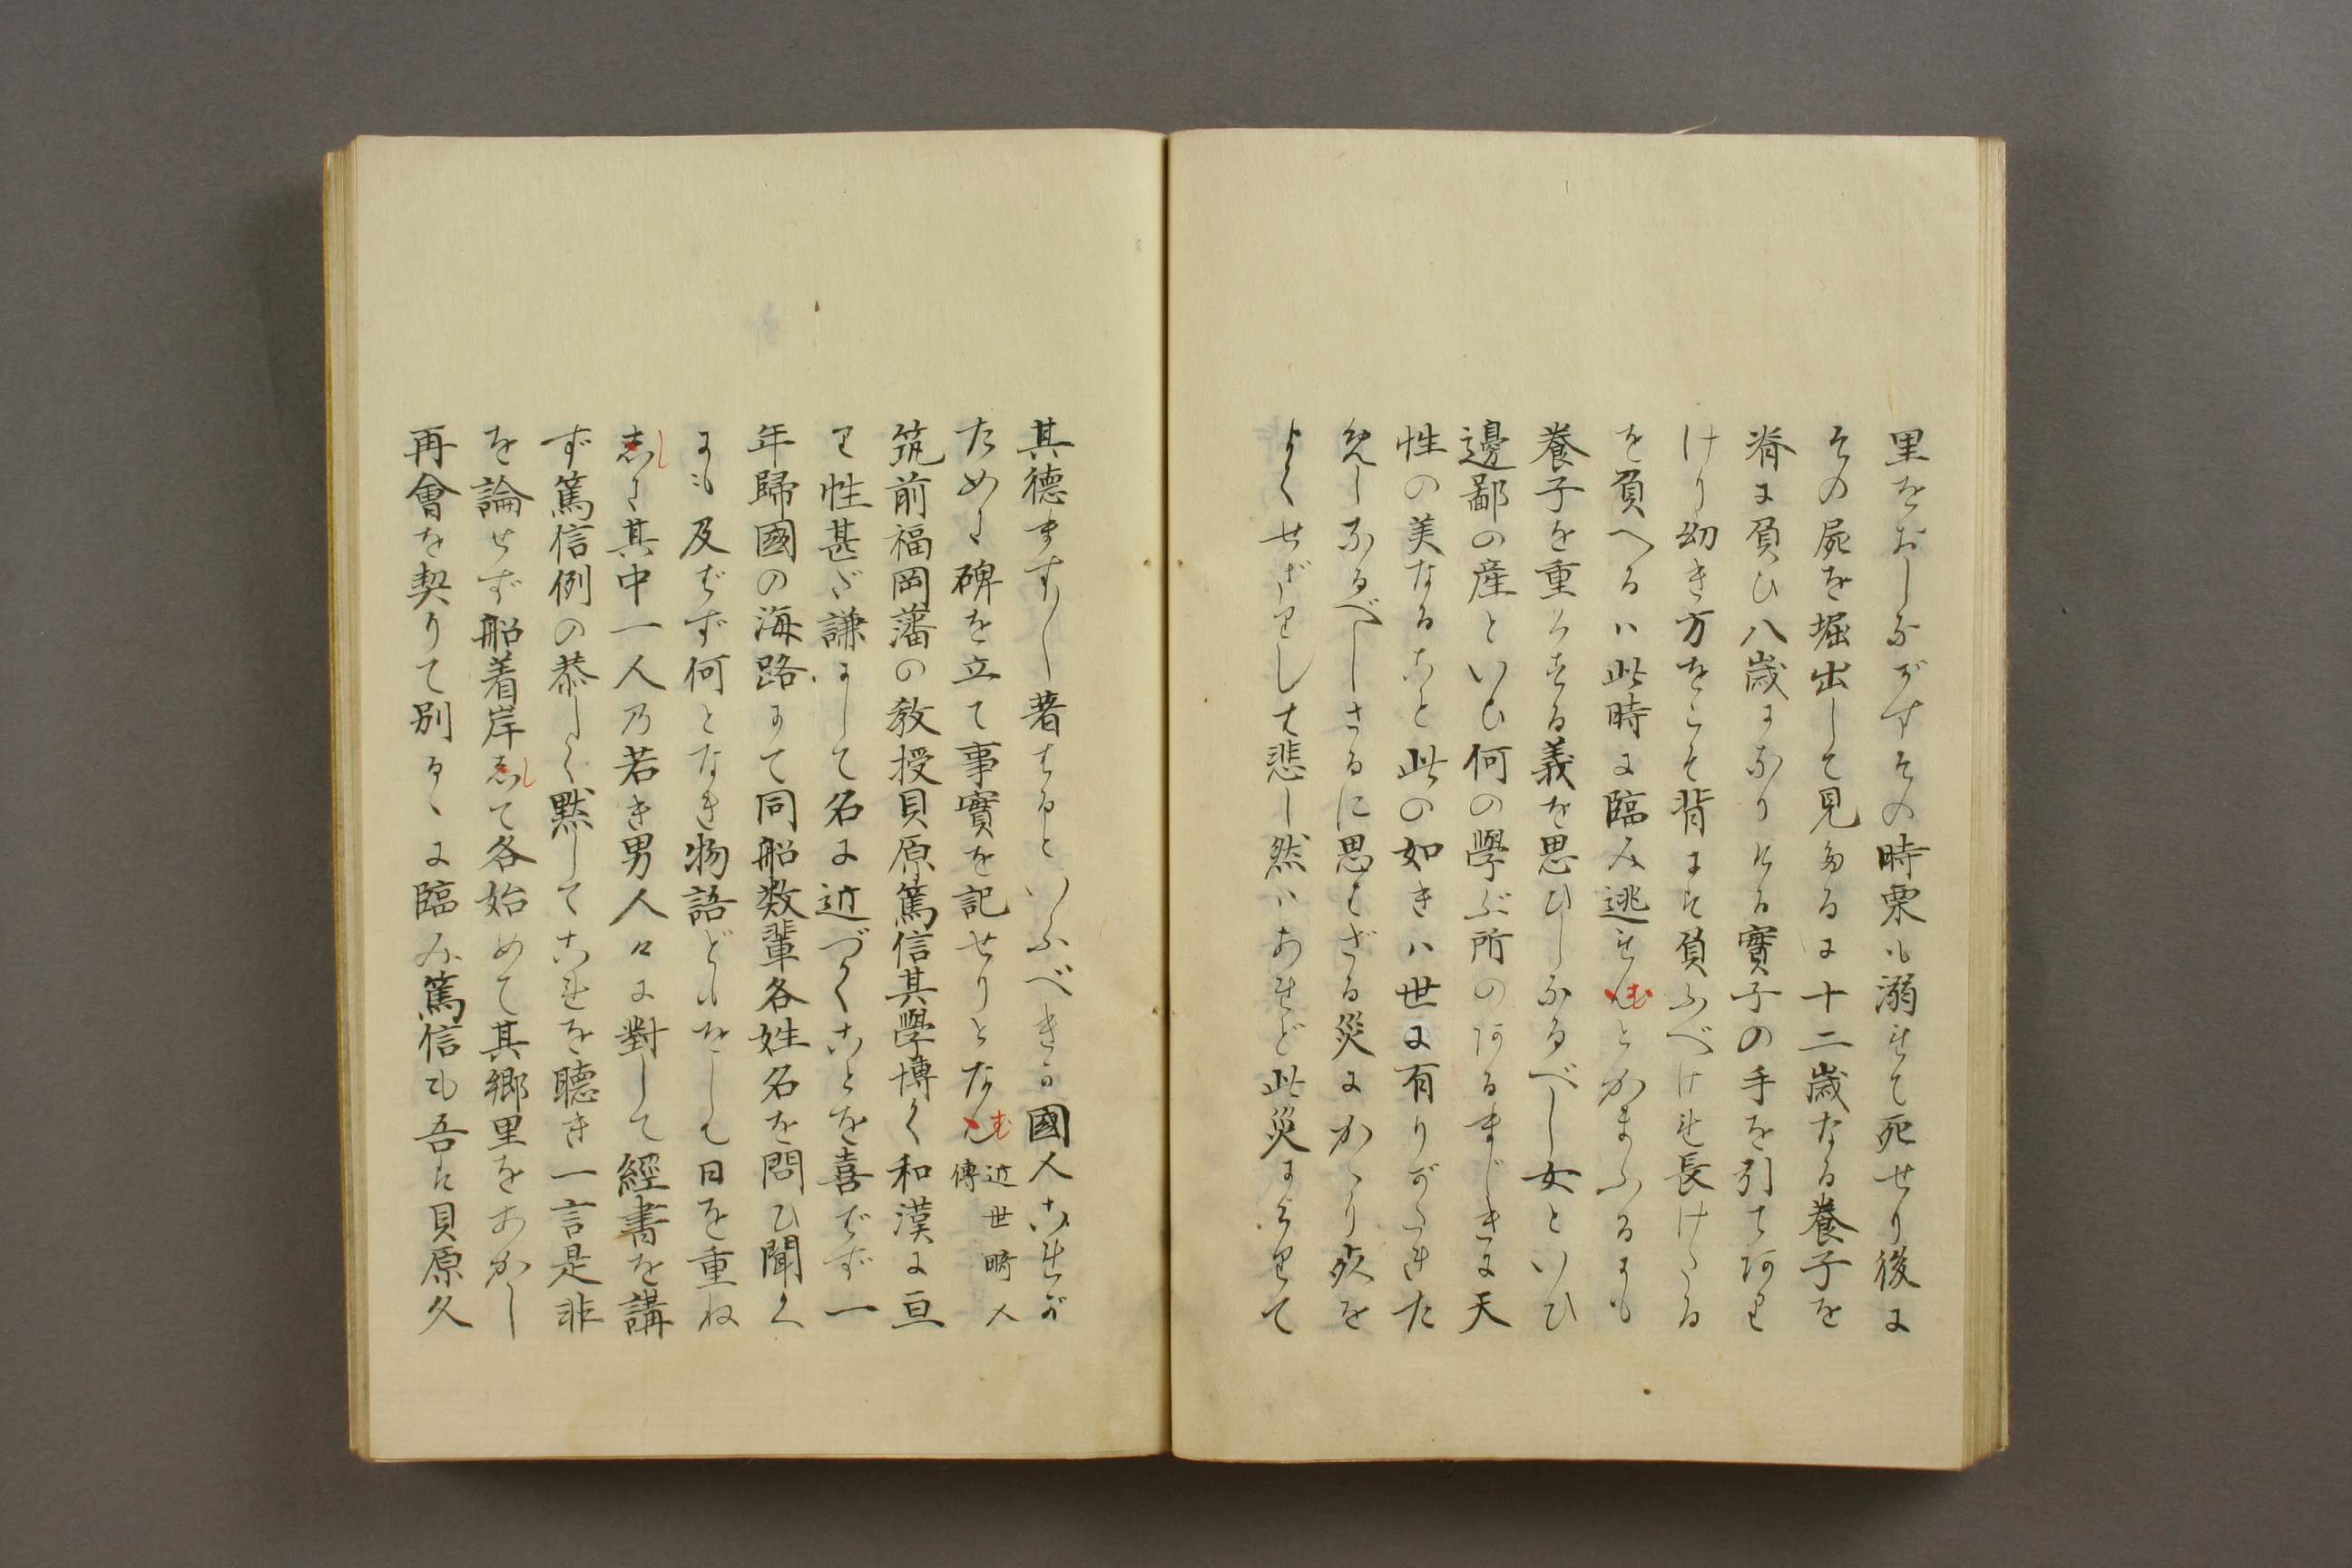 里をおしながすその時栗も溺れて死せり後に
その屍を堀出して見るに十二歳なる養子を
脊に負ひ八歳になりける實子の手を引てあり
けり幼き方をこそ背には負ふべけれ長けたる
を負へるハ此時に臨み逃れんむとかまふるにも
養子を重くする義を思ひしなるべし女といひ
邊鄙の産といひ何の學ぶ所のあるまじきに天
性の美なること此の如きハ世に有りがたきた
めしなるべしさるに思はざる災にかゝり死を
よくせざりして悲し然ハあれど此災によりて
其徳ます〳〵著はるといふべきか國人これが
ために碑を立て事實を記せりとなんむ 近世畸人
傳
筑前福岡藩の教授貝原篤信其學博く和漢に亘
り性甚だ謙にして名に近づくことを喜ばず一
年歸國の海路にて同船数輩各姓名を問ひ聞く
にも及ばず何となき物語どもをして日を重ね
志しに其中一人乃若き男人々に對して經書を講
ず篤信例の恭しく黙してこれを聴き一言是非
を論せず船着岸志して各始めて其郷里をあかし
再會を契りて別るゝに臨み篤信も吾は貝原久